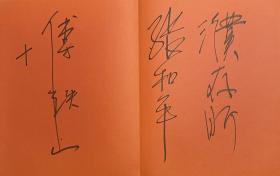 濮存昕
张和平
傅铁山
十